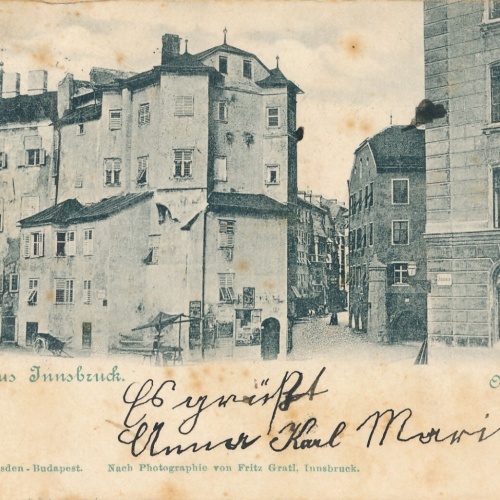 us Innsbruck.
Es grüßt
Anna Karl Mari
sden-Budapest. Nach Photographie von Fritz Gratl, Innsbruck.